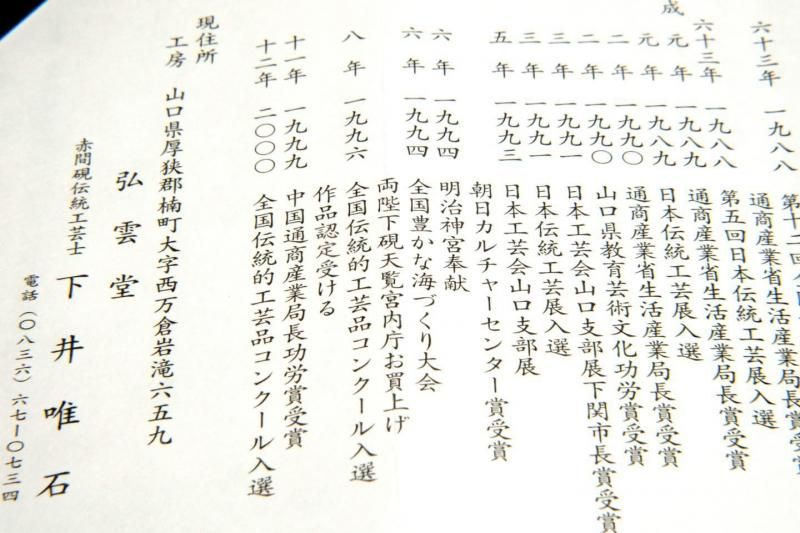 第十二回
六十三年 一九八八 通商産業省生活産業局長賞受賞
第五回日本伝統工芸展入選
六十三年 一九八八 通商産業省生活産業局長賞受賞
成元年 一九八九 日本伝統工芸展入選
元年 一九八九 通商産業省生活産業局長賞受賞
二年 一九九〇 山口県教育芸術文化功労賞受賞
二年 一九九〇 日本工芸会山口支部展下関市長賞受賞
三年 一九九一 日本伝統工芸展入選
三年 一九九一 日本工芸会山口支部展
五年 一九九三 朝日カルチャーセンター賞受賞
六年 一九九四 明治神宮奉献
六年 一九九四 全国豊かな海づくり大会
両陛下硯天覧宮内庁お買上げ
八年 一九九六 全国伝統的工芸品コンクール入選
作品認定受ける
十一年 一九九九 中国通商産業局長功労賞受賞
十二年 二〇〇〇 全国伝統的工芸品コンクール入選
現住所
工房 山口県厚狭郡楠町大字西万倉岩滝六五九
弘雲堂
赤間硯伝統工芸士 下井唯石
電話(〇八三六)六七ー〇七三四